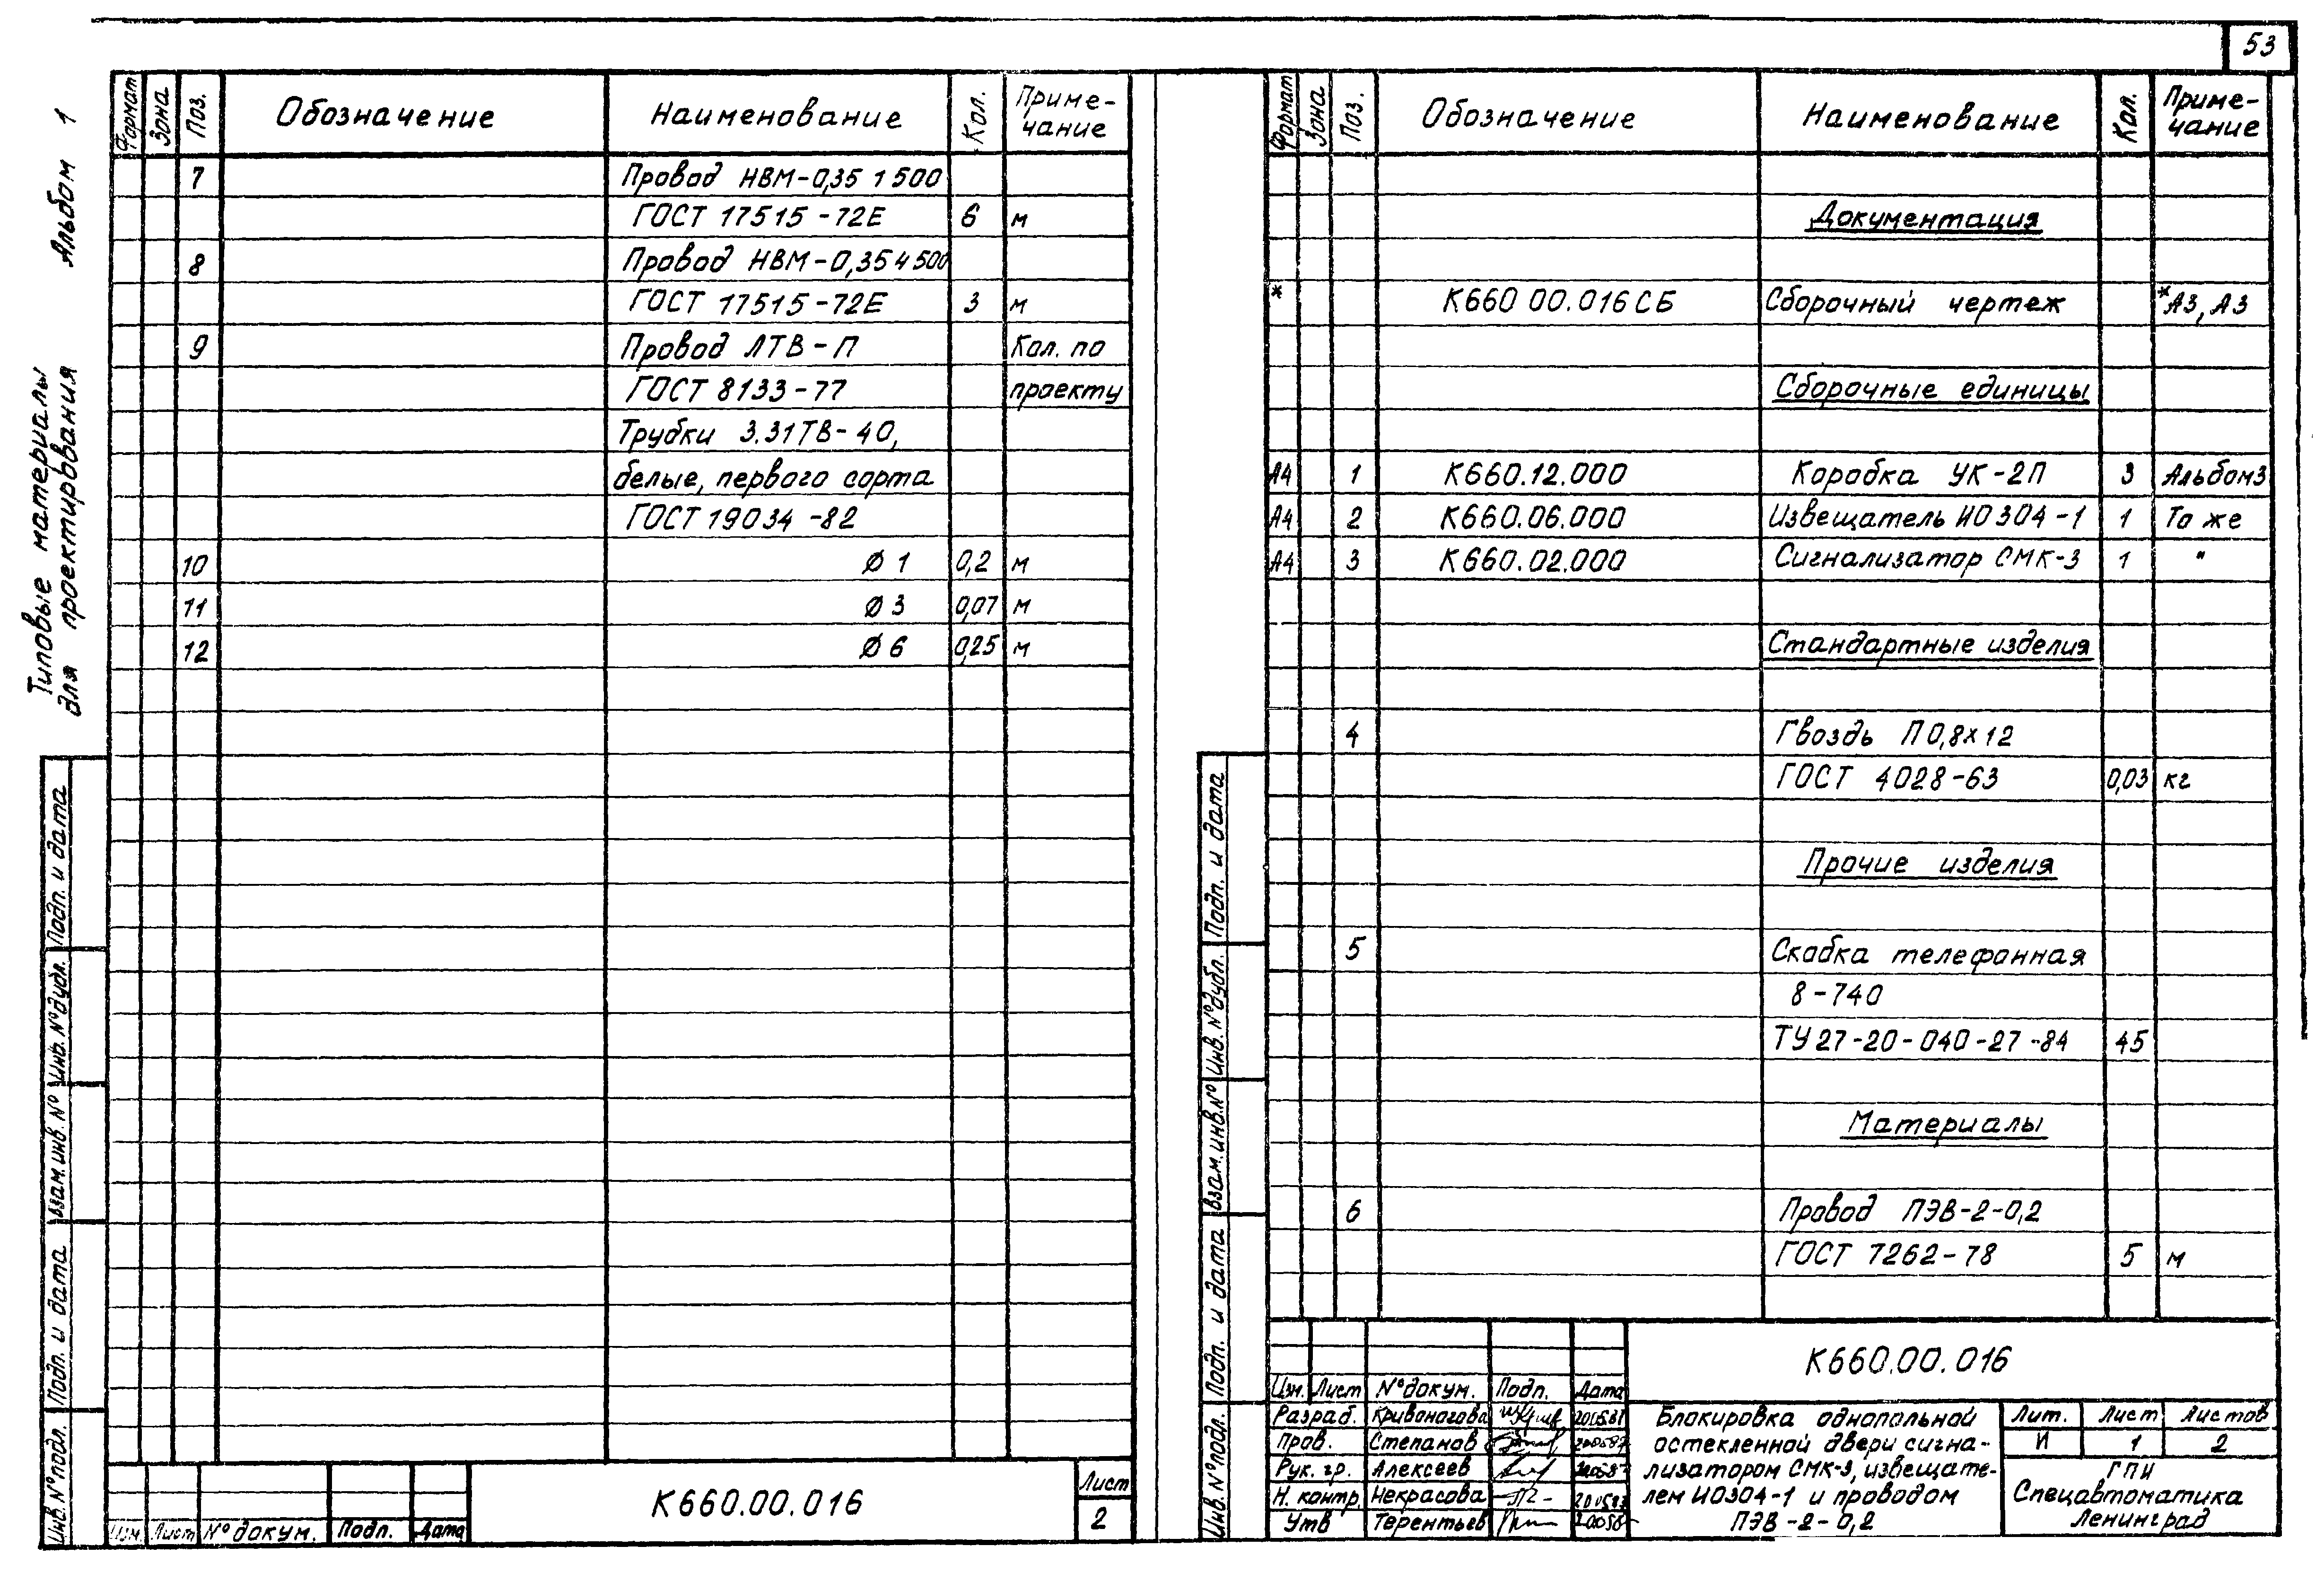 53
Типовые материалы
для проектирования Альбом 1
Формат Зона Поз. Обозначение Наименование Кол. Приме-
чание
7 Провод НВМ-0,35 1 500
ГОСТ 17515-72Е 6 м
8 Провод НВМ-0,35 4 500
ГОСТ 17515-72Е 3 м
9 Провод ЛТВ-П Кол. по
ГОСТ 8133-77 проекту
Трубки 3.31ТВ-40,
белые, первого сорта
ГОСТ 19034-82
10 Ø 1 0,2 м
11 Ø 3 0,07 м
12 Ø 6 0,25 м
Подп. и дата
Инв. № дубл.
Взам. инв. №
Подп. и дата
Инв. № подл.
Изм Лист № докум. Подп. Дата
К660.00.016
Лист
2
Формат Зона Поз. Обозначение Наименование Кол. Приме-
чание
Документация
* К660 00.016 СБ Сборочный чертеж *А3, А3
Сборочные единицы
А4 1 К660.12.000 Коробка УК-2П 3 Альбом 3
А4 2 К660.06.000 Извещатель ИО 304-1 1 То же
А4 3 К660.02.000 Сигнализатор СМК-3 1 "
Стандартные изделия
4 Гвоздь П 0,8х12
ГОСТ 4028-63 0,03 кг
Прочие изделия
5 Скобка телефонная
8-740
ТУ 27-20-040-27-84 45
Материалы
6 Провод ПЭВ-2-0,2
ГОСТ 7262-78 5 м
Подп. и дата
Инв. № дубл.
Взам. инв. №
Подп. и дата
Инв. № подл.
К660.00.016
Изм. Лист № докум. Подп. Дата
Разраб. Кривоногова
Пров. Степанов
Рук. гр. Алексеев
Н. контр. Некрасова
Утв Терентьев
Блокировка однопольной
остекленной двери сигна-
лизатором СМК-3, извещате-
лем ИО304-1 и проводом
ПЭВ-2-0,2
Лит. Лист Листов
И 1 2
ГПИ
Спецавтоматика
Ленинград